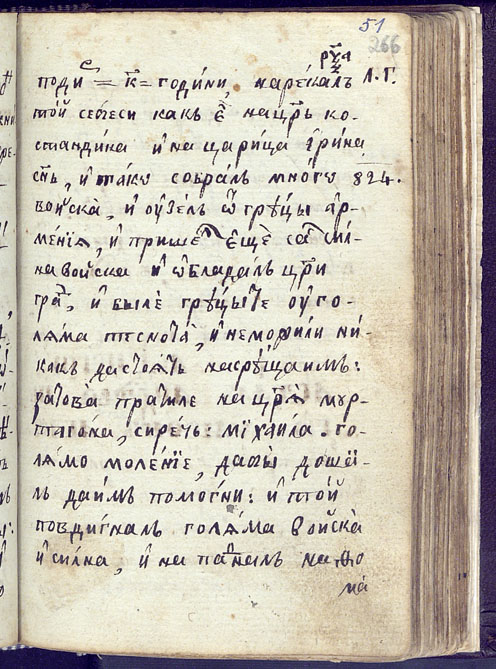 51
266
поди = к҃ = години, нарекалъ Л.Г.
той себеси какъ е҆ на цр҃ь ко-
стандина и на царица ірина
сн҃ъ, и тако собралъ много 824.
войска, и оузелъ ѿ грꙋцы ар-
меніѧ, и прише еще са сил-
на войска и ѡбладалъ цр҃и
гра, и быле грꙋцыте оу го-
лѧма теснота, и не можили ни-
какъ да стоѧтъ насрѣщаимъ:
затова пратиле на цр҃ѧ мур-
тагона, сиречь міхаила. го-
лѧмо моленіе, дабы доше-
лъ даимъ помогни: и той
повдигналъ голѧма войска
и силна, и нападналъ на ѳо
ма